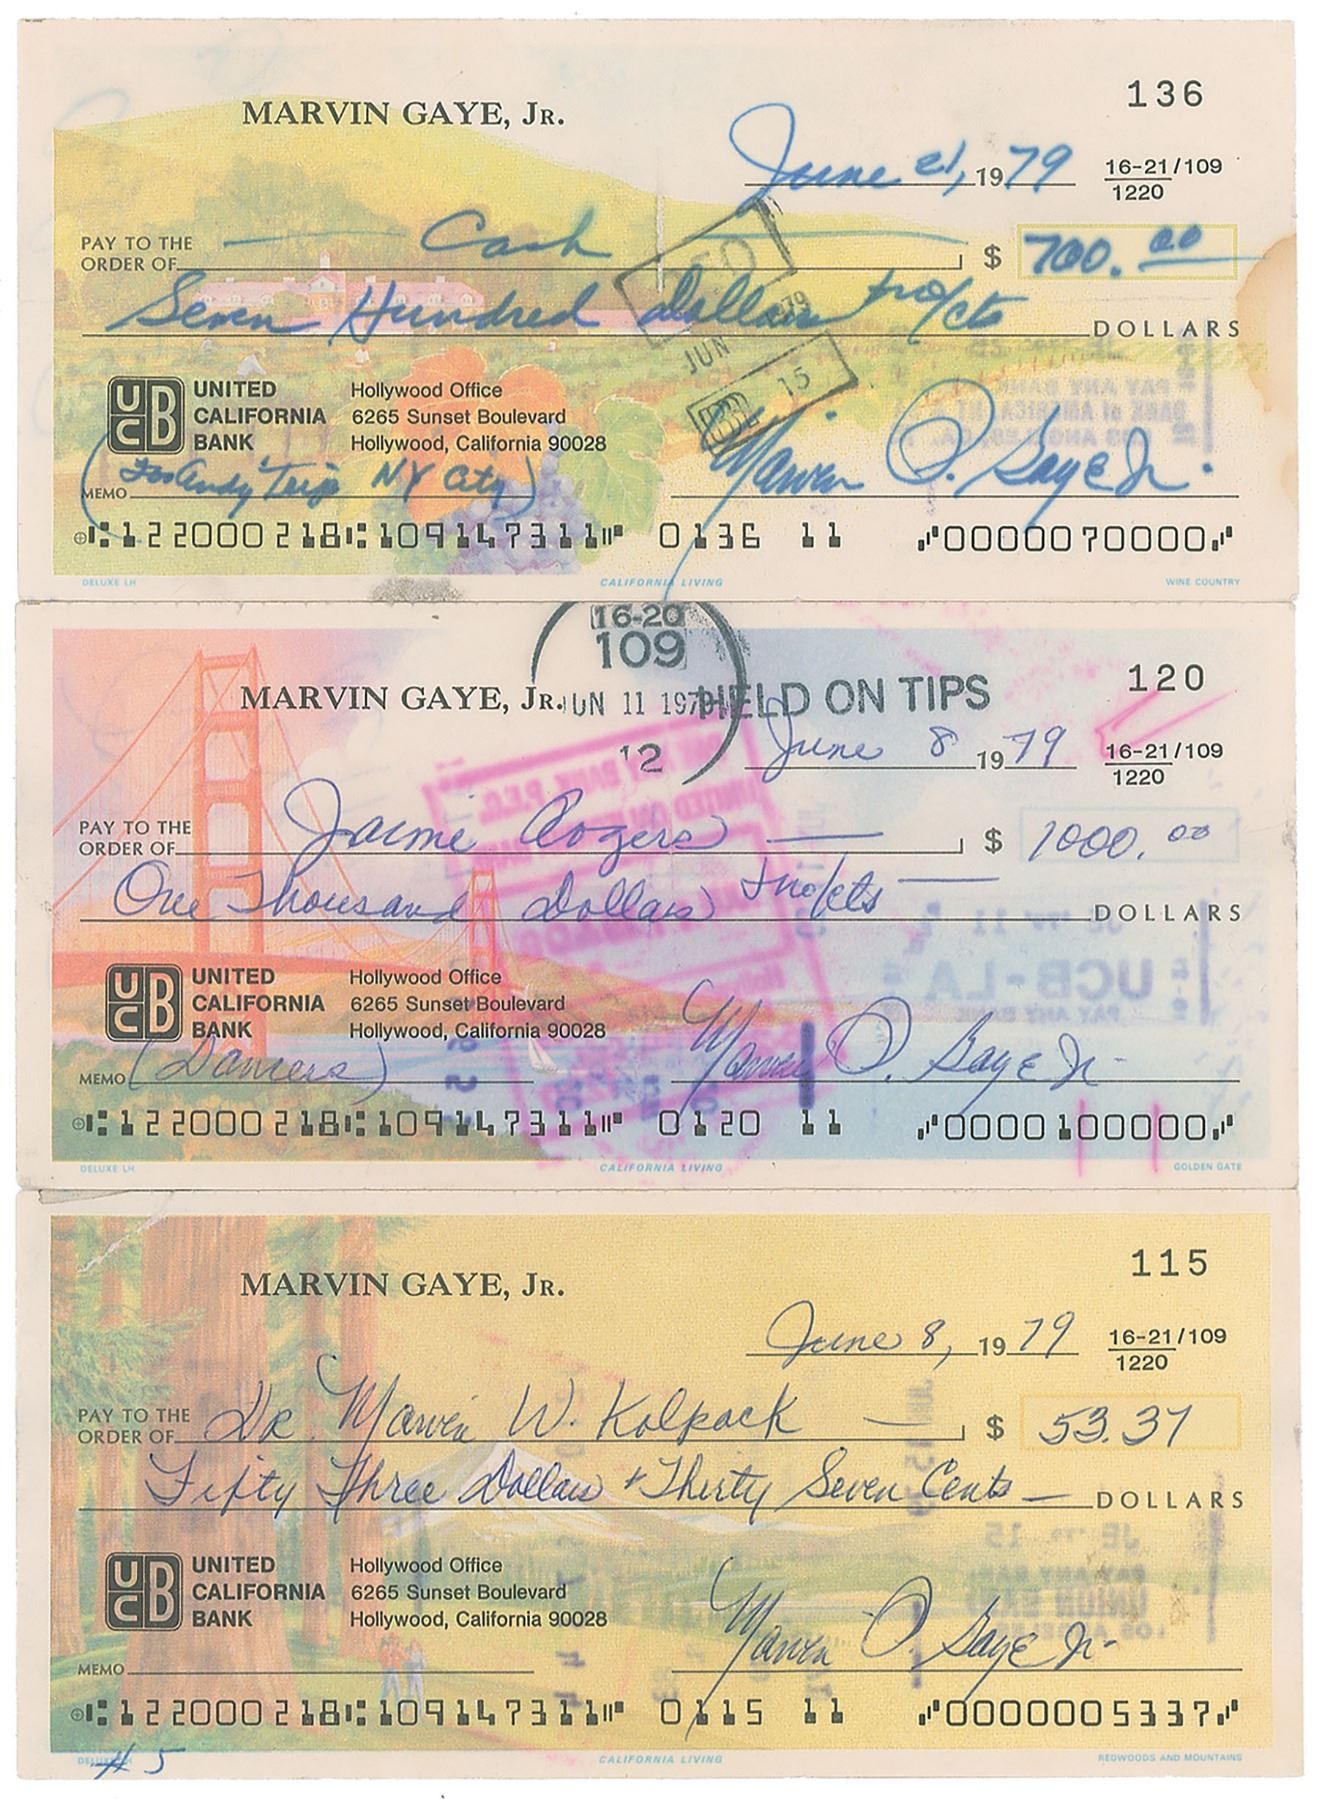 MARVIN GAYE, JR.
136
June 21, 1979
16-21/109
1220
PAY TO THE
ORDER OF Cash $ 700.00
Seven Hundred Dollars + no/cts DOLLARS
UCB UNITED CALIFORNIA BANK
Hollywood Office
6265 Sunset Boulevard
Hollywood, California 90028
JUN
15
MEMO (For Andy Trip NY City)
Marvin P. Gaye Jr.
⑆122000218⑆109147311⑈ 0136 11 ⑇0000070000⑇
DELUXE LH
CALIFORNIA LIVING
WINE COUNTRY
16-20
109
JUN 11 1979
12
HELD ON TIPS
MARVIN GAYE, JR.
120
June 8 1979
16-21/109
1220
PAY TO THE
ORDER OF Jaime Rogers $ 1000.00
One Thousand Dollars + no/cts DOLLARS
UCB UNITED CALIFORNIA BANK
Hollywood Office
6265 Sunset Boulevard
Hollywood, California 90028
MEMO (Dancers)
Marvin P. Gaye Jr.
⑆122000218⑆109147311⑈ 0120 11 ⑇0000100000⑇
DELUXE LH
CALIFORNIA LIVING
GOLDEN GATE
MARVIN GAYE, JR.
115
June 8, 1979
16-21/109
1220
PAY TO THE
ORDER OF Dr. Marvin W. Kolpack $ 53.37
Fifty Three Dollars + Thirty Seven Cents DOLLARS
UCB UNITED CALIFORNIA BANK
Hollywood Office
6265 Sunset Boulevard
Hollywood, California 90028
MEMO
Marvin P. Gaye Jr.
⑆122000218⑆109147311⑈ 0115 11 ⑇0000005337⑇
DELUXE LH
# 5
CALIFORNIA LIVING
REDWOODS AND MOUNTAINS